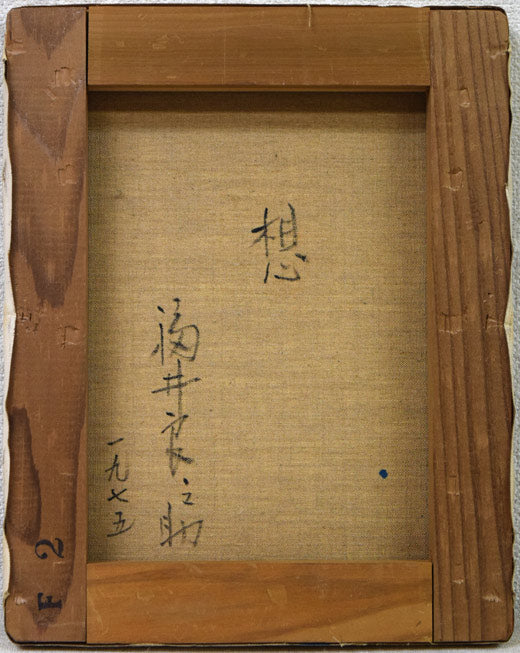 想
福井良之助
一九七五
F 2